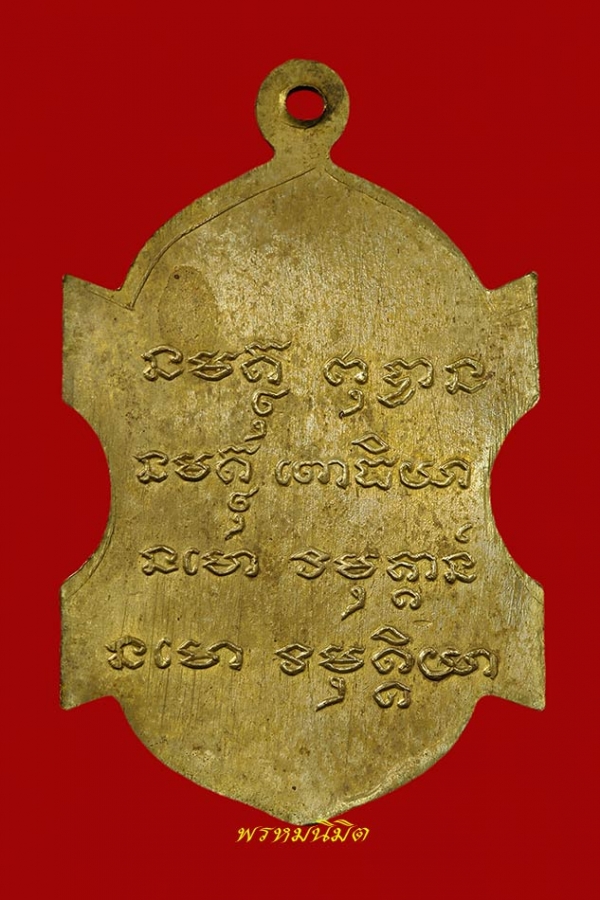 នមត្ថុ ពុទ្ធាន
នមត្ថុ ពោធិយា
នមោ វមុត្តានំ
នមោ วមុត្តិយា
พรหมนิมิต